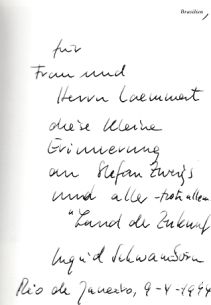 Brasilien,
für
Frau und
Herrn Laemmert
diese kleine
Erinnerung
an Stefan Zweigs
und aller - trotz allem
"Land der Zukunft
Ingrid Schwamborn
Rio de Janeiro, 9-4-1994